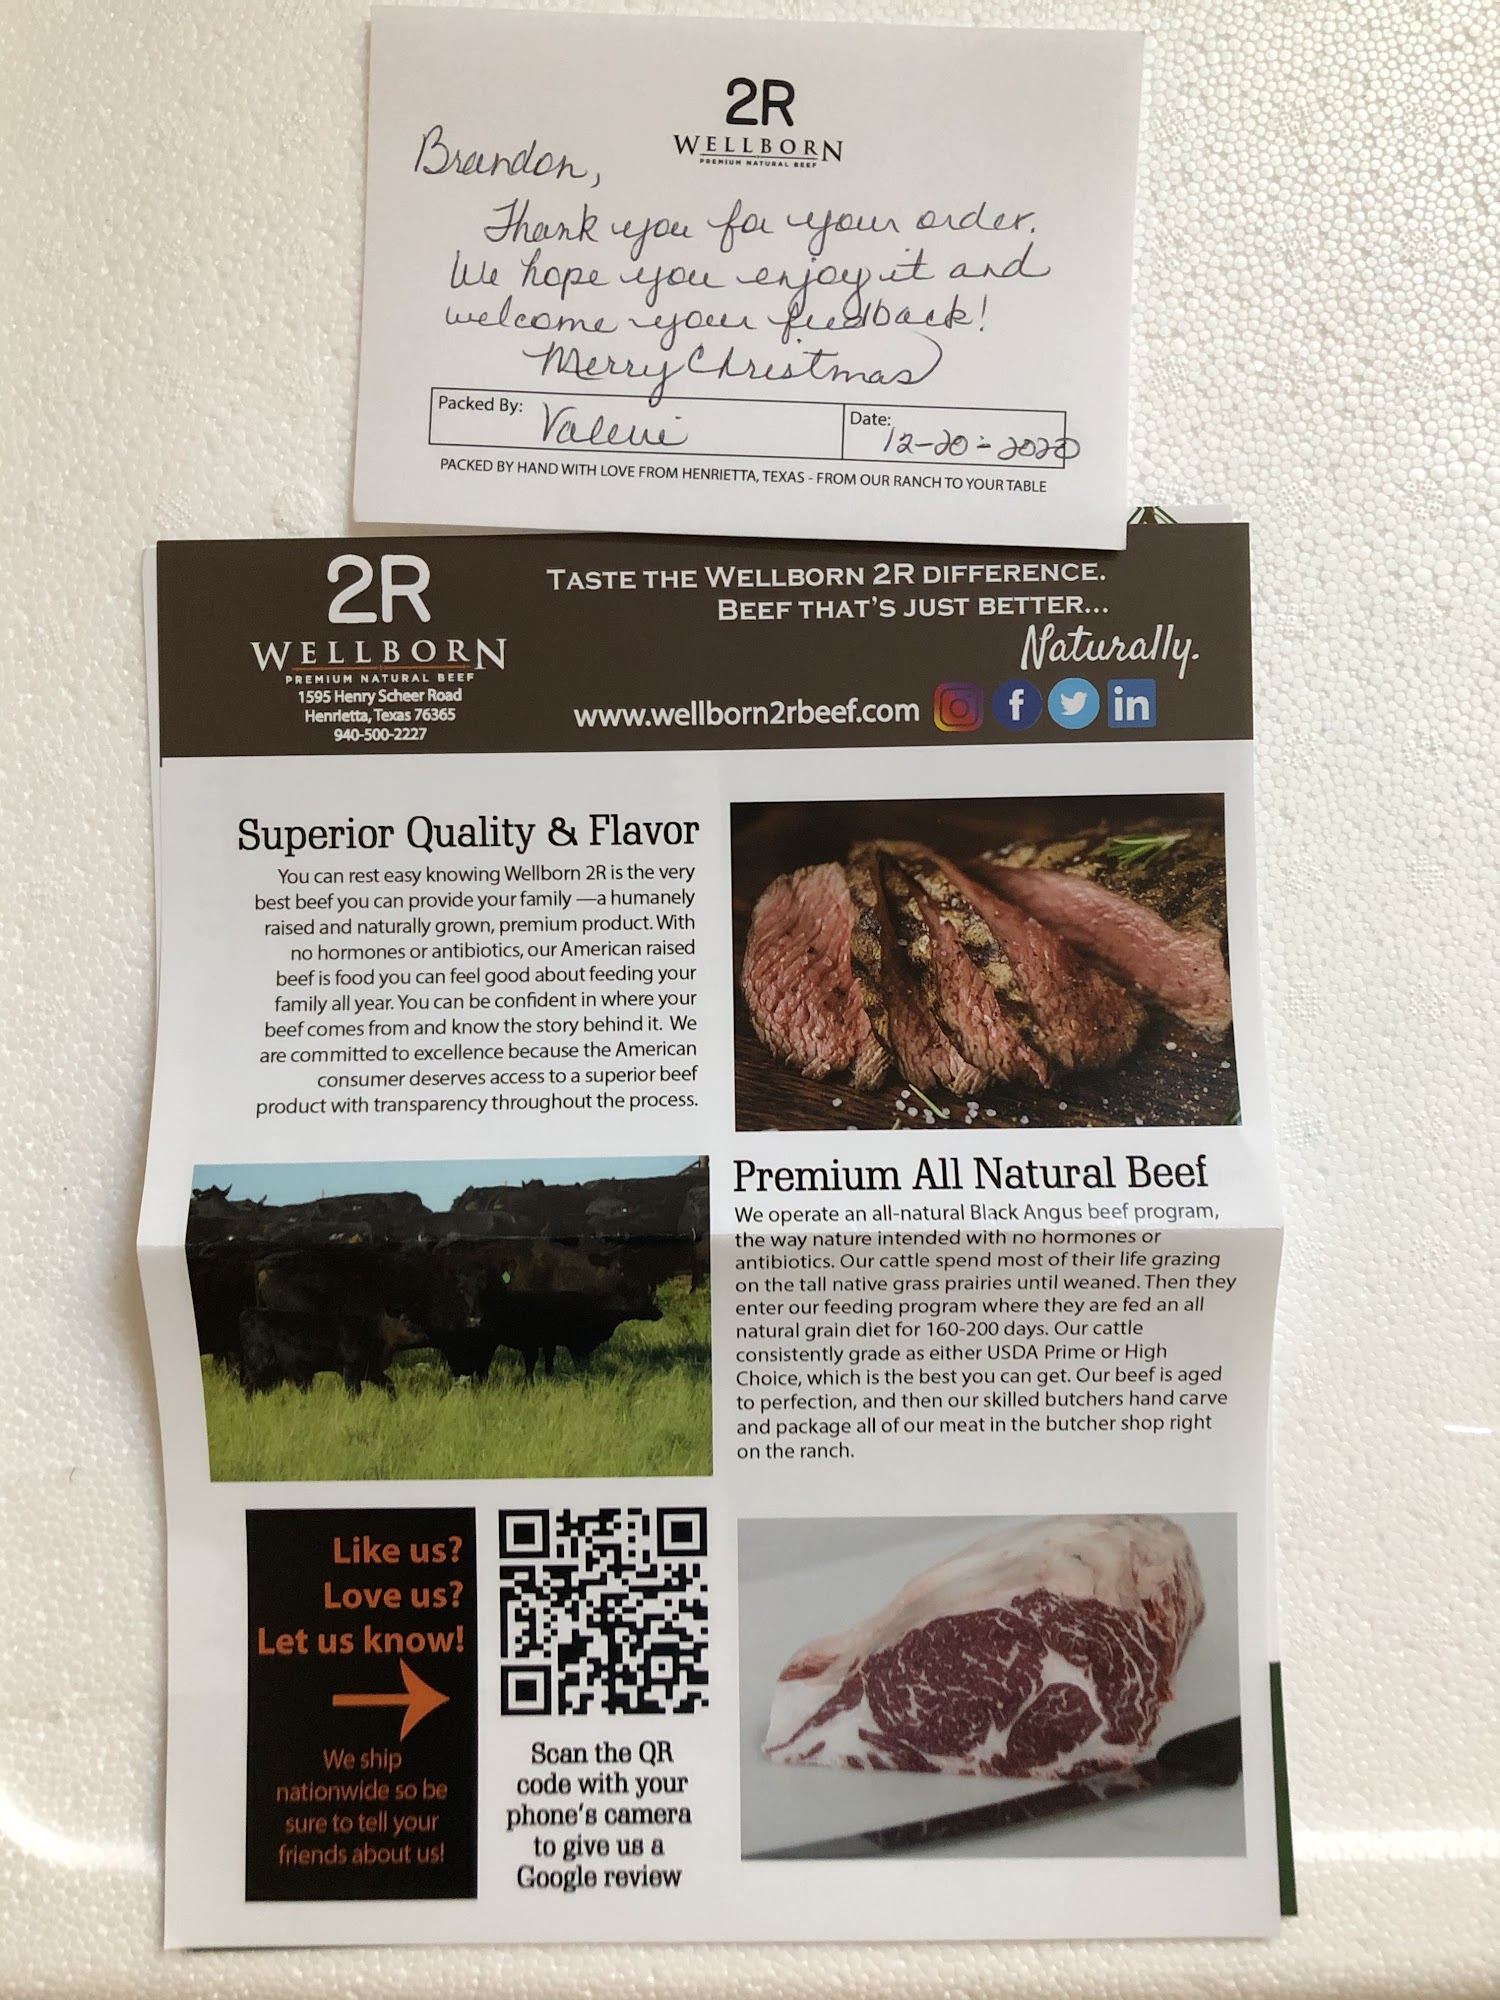 2R
WELLBORN
PREMIUM NATURAL BEEF
Brandon,
Thank you for your order.
We hope you enjoy it and
welcome your feedback!
Merry Christmas
Packed By: Valerie
Date: 12-20-2020
PACKED BY HAND WITH LOVE FROM HENRIETTA, TEXAS - FROM OUR RANCH TO YOUR TABLE
2R
WELLBORN
PREMIUM NATURAL BEEF
1595 Henry Scheer Road
Henrietta, Texas 76365
940-500-2227
TASTE THE WELLBORN 2R DIFFERENCE.
BEEF THAT'S JUST BETTER...
Naturally.
www.wellborn2rbeef.com
Superior Quality & Flavor
You can rest easy knowing Wellborn 2R is the very
best beef you can provide your family —a humanely
raised and naturally grown, premium product. With
no hormones or antibiotics, our American raised
beef is food you can feel good about feeding your
family all year. You can be confident in where your
beef comes from and know the story behind it. We
are committed to excellence because the American
consumer deserves access to a superior beef
product with transparency throughout the process.
Premium All Natural Beef
We operate an all-natural Black Angus beef program,
the way nature intended with no hormones or
antibiotics. Our cattle spend most of their life grazing
on the tall native grass prairies until weaned. Then they
enter our feeding program where they are fed an all
natural grain diet for 160-200 days. Our cattle
consistently grade as either USDA Prime or High
Choice, which is the best you can get. Our beef is aged
to perfection, and then our skilled butchers hand carve
and package all of our meat in the butcher shop right
on the ranch.
Like us?
Love us?
Let us know!
We ship
nationwide so be
sure to tell your
friends about us!
Scan the QR
code with your
phone's camera
to give us a
Google review